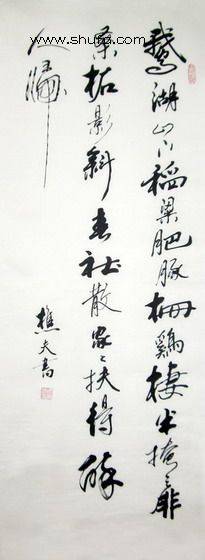 www.shufa.com
鵝湖山下稻粱肥豚栅鷄棲半掩扉
桑柘影斜春社散家々扶得醉
人歸
樵夫書